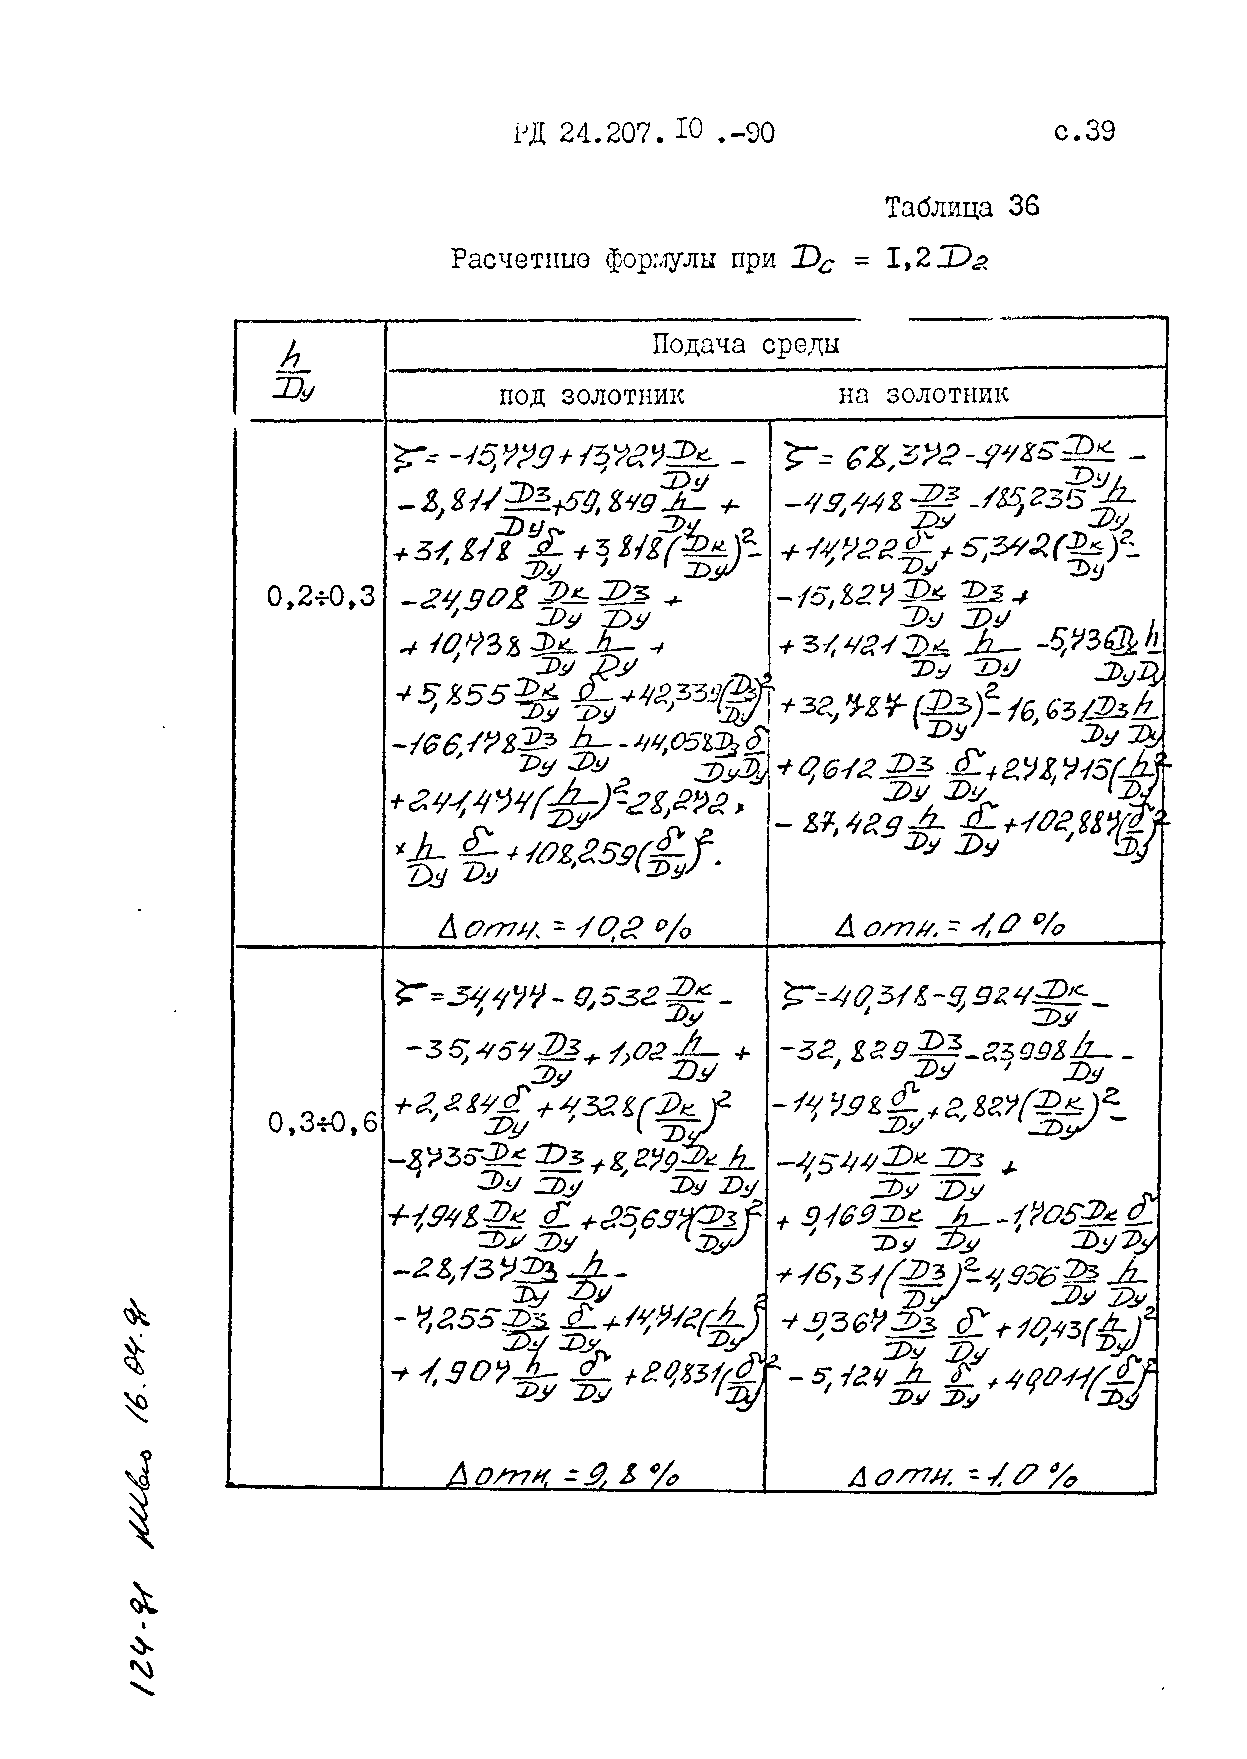 РД 24.207.10.-90 с.39
Таблица 36
Расчетные формулы при Dс = 1,2 Dг
h/Dу
Подача среды
под золотник на золотник
0,2÷0,3
ζ = -15,779 + 13,727 Dк/Dу -
- 8,811 Dз/Dу + 59,849 h/Dу +
+ 31,818 δ/Dу + 3,818 (Dк/Dу)² -
- 24,908 Dк/Dу Dз/Dу +
+ 10,738 Dк/Dу h/Dу +
+ 5,855 Dк/Dу δ/Dу + 42,339 (Dз/Dу)²
- 166,178 Dз/Dу h/Dу - 44,058 Dз/Dу δ/Dу
+ 241,474 (h/Dу)² - 28,272 ×
× h/Dу δ/Dу + 108,259 (δ/Dу)².
Δ отн. = 10,2 %
ζ = 68,372 - 9,485 Dк/Dу -
- 49,448 Dз/Dу - 185,235 h/Dу
+ 14,722 δ/Dу + 5,342 (Dк/Dу)² -
- 15,827 Dк/Dу Dз/Dу +
+ 31,421 Dк/Dу h/Dу - 5,736 Dк/Dу h/Dу
+ 32,787 (Dз/Dу)² - 16,631 Dз/Dу h/Dу
+ 0,612 Dз/Dу δ/Dу + 278,715 (h/Dу)²
- 87,429 h/Dу δ/Dу + 102,887 (δ/Dу)²
Δ отн. = 1,0 %
0,3÷0,6
ζ = 34,477 - 9,532 Dк/Dу -
- 35,457 Dз/Dу + 1,02 h/Dу +
+ 2,287 δ/Dу + 4,328 (Dк/Dу)²
- 8,735 Dк/Dу Dз/Dу + 8,279 Dк/Dу h/Dу
+ 1,948 Dк/Dу δ/Dу + 25,697 (Dз/Dу)²
- 28,137 Dз/Dу h/Dу -
- 7,255 Dз/Dу δ/Dу + 14,712 (h/Dу)²
+ 1,907 h/Dу δ/Dу + 20,831 (δ/Dу)²
Δ отн. = 9,8 %
ζ = 40,318 - 9,924 Dк/Dу -
- 32,829 Dз/Dу - 23,998 h/Dу -
- 14,798 δ/Dу + 2,827 (Dк/Dу)² -
- 4,544 Dк/Dу Dз/Dу +
+ 9,169 Dк/Dу h/Dу - 1,705 Dк/Dу δ/Dу
+ 16,31 (Dз/Dу)² - 4,956 Dз/Dу h/Dу
+ 9,367 Dз/Dу δ/Dу + 10,43 (h/Dу)²
- 5,127 h/Dу δ/Dу + 49,011 (δ/Dу)²
Δ отн. = 1,0 %
124-91 16.04.91